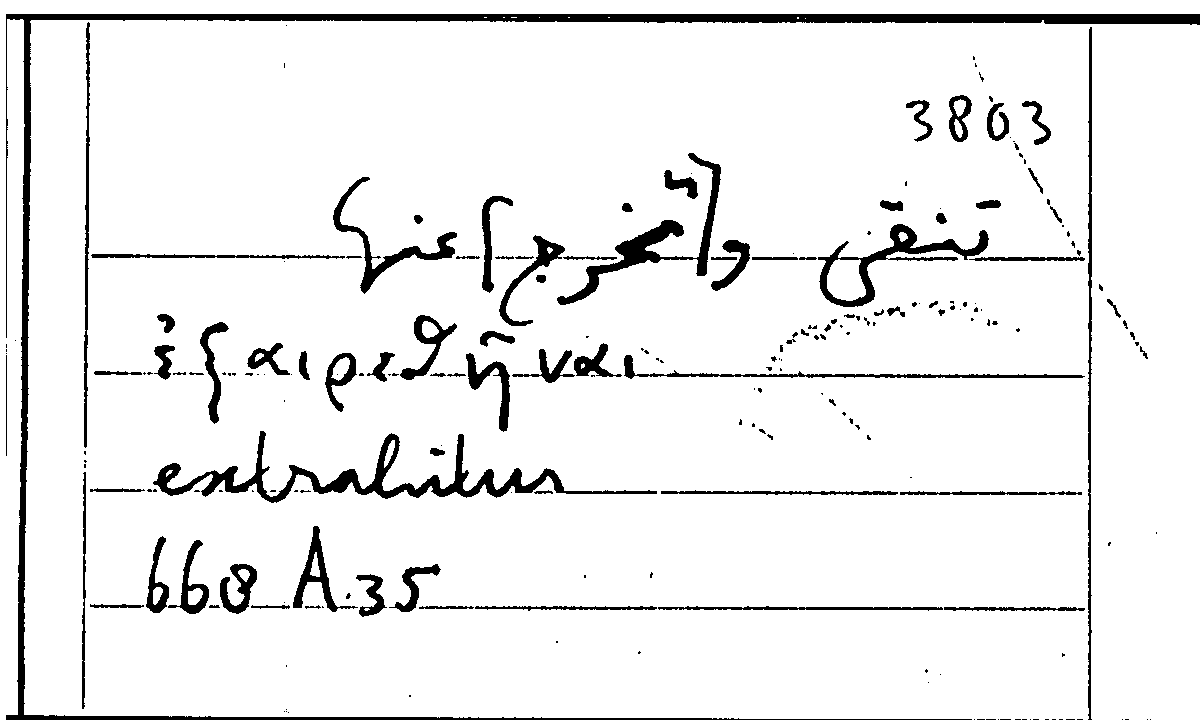 3803
تنقى واخرج عنها
ἐξαιρεθῆναι
extrahitur
668 A.35